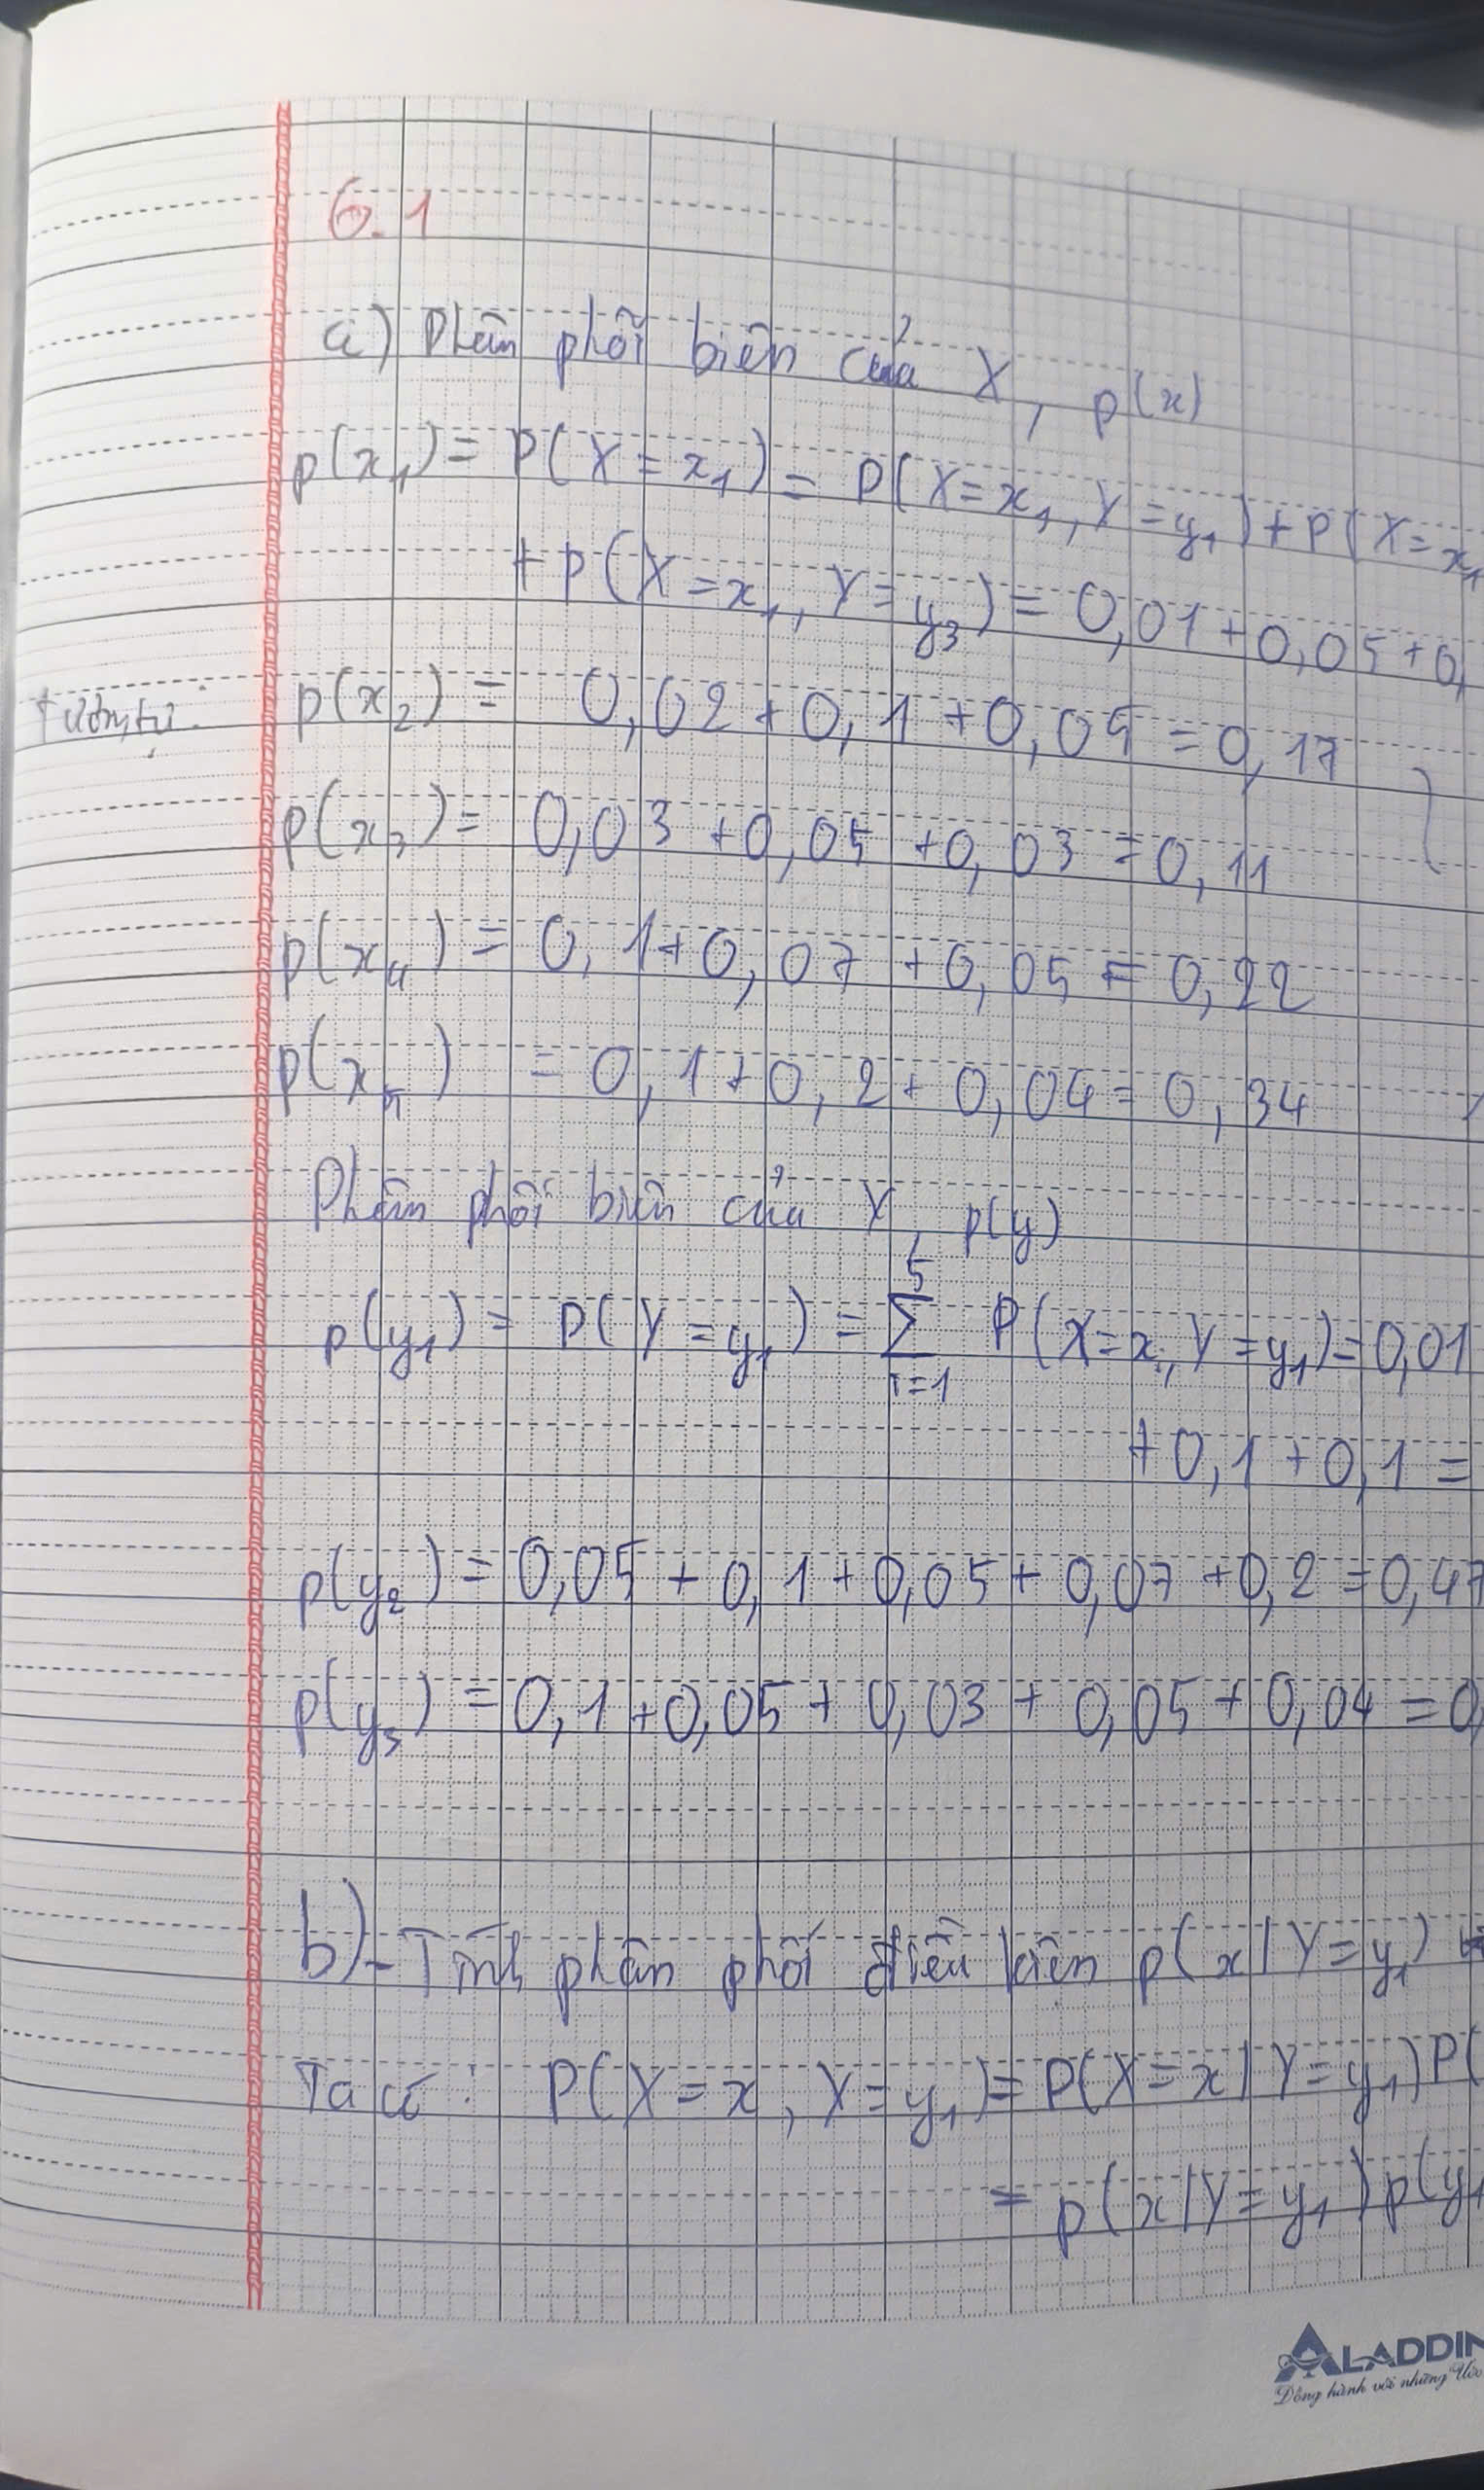 6.1
a) Phân phối biên của X, p(x)
p(x₁) = P(X = x₁) = P(X = x₁, Y = y₁) + P(X = x₁
+ P(X = x₁, Y = y₃) = 0,01 + 0,05 + 0,
Tương tự: p(x₂) = 0,02 + 0,1 + 0,05 = 0,17
p(x₃) = 0,03 + 0,05 + 0,03 = 0,11
p(x₄) = 0,1 + 0,07 + 0,05 = 0,22
p(x₅) = 0,1 + 0,2 + 0,04 = 0,34
Phân phối biên của Y, p(y)
p(y₁) = P(Y = y₁) = ∑⁵ᵢ₌₁ P(X = xᵢ, Y = y₁) = 0,01
+ 0,1 + 0,1 =
p(y₂) = 0,05 + 0,1 + 0,05 + 0,07 + 0,2 = 0,47
p(y₃) = 0,1 + 0,05 + 0,03 + 0,05 + 0,04 = 0,
b) - Tính phân phối điều kiện p(x | Y = y₁)
Ta có: P(X = x, Y = y₁) = P(X = x | Y = y₁) P(
= p(x | Y = y₁) p(y₁
ALADDIN
Đồng hành với những Ước